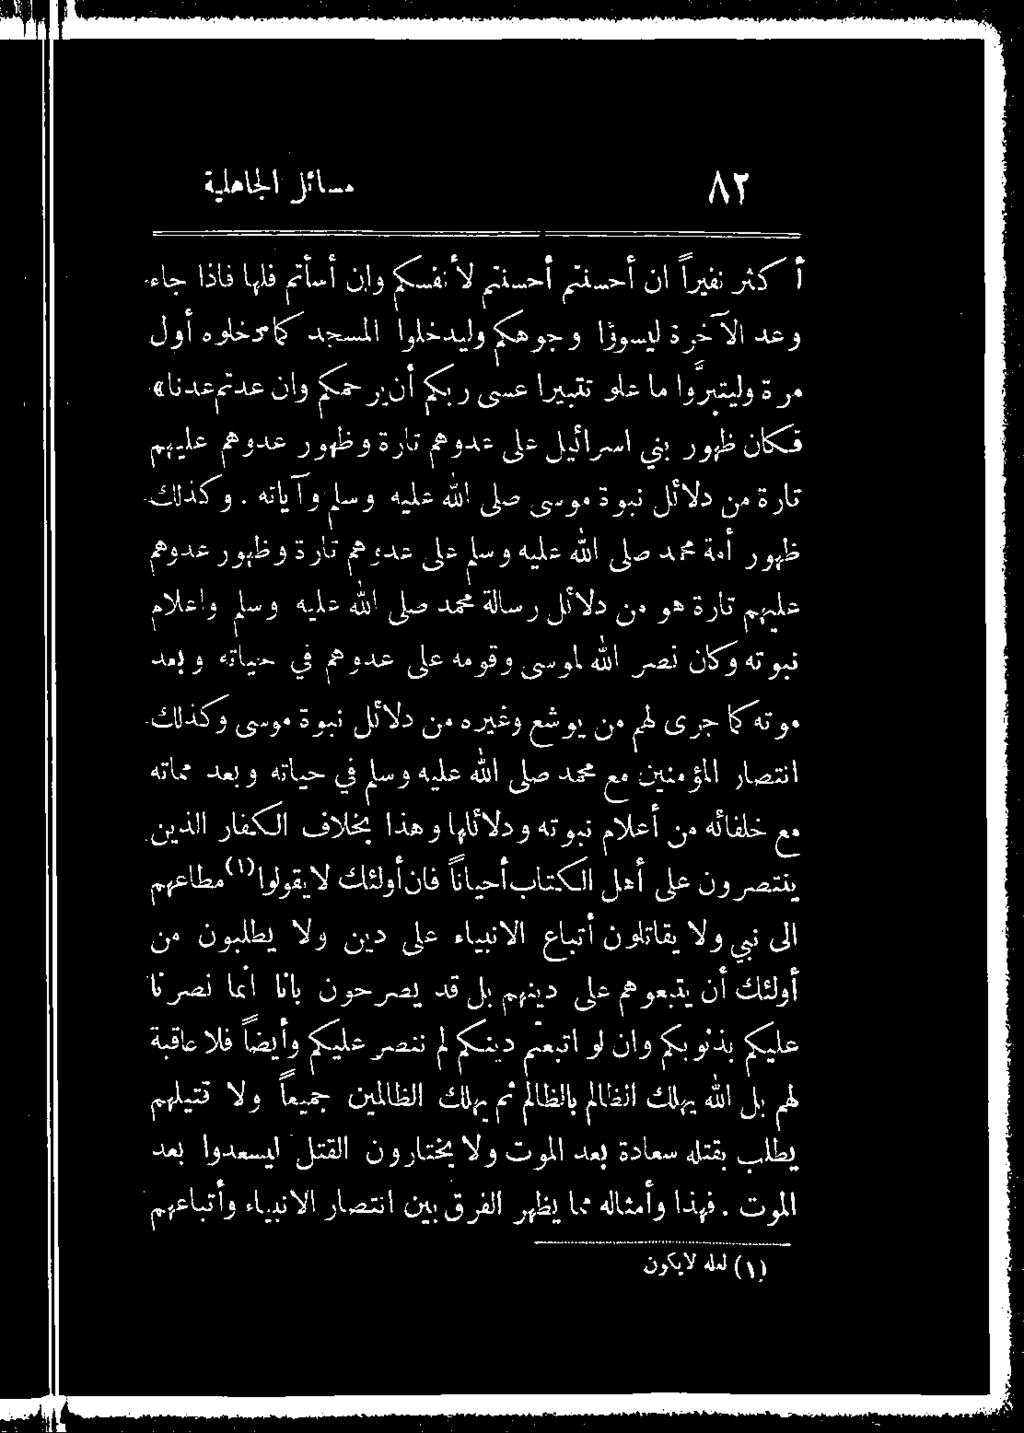 ٨٢
مسائل الجاهلية
أكثر نفيراً ان أحسنتم أحسنتم لأنفسكم وان أسأتم فلها فاذا جاء
وعد الآخرة ليسوؤا وجوهكم وليدخلوا المسجد كما دخلوه أول
مرة وليتبروا ما علو تتبيرا عسى ربكم أن يرحمكم وان عدتم عدنا»
فكان ظهور بني اسرائيل على عدوهم تارة وظهور عدوهم عليهم
تارة من دلائل نبوة موسى صلى الله عليه وسلم وآياته . وكذلك
ظهور أمة محمد صلى الله عليه وسلم على عدوهم تارة وظهور عدوهم
عليهم تارة هو من دلائل رسالة محمد صلى الله عليه وسلم واعلام
نبوته وكان نصر الله لموسى وقومه على عدوهم في حياته وبعد
موته كما جرى لهم من يوشع وغيره من دلائل نبوة موسى وكذلك
انتصار المؤمنين مع محمد صلى الله عليه وسلم في حياته وبعد مماته
مع خلفائه من أعلام نبوته ودلائلها وهذا بخلاف الكفار الذين
ينتصرون على أهل الكتاب أحياناً فان أولئك لا يقولوا (١) مطاعهم
الى نبي ولا يقاتلون أتباع الانبياء على دين ولا يطلبون من
أولئك أن يتبعوهم على دينهم بل قد يصرحون بانا انما نصرنا
عليكم بذنوبكم وان لو اتبعتم دينكم لم ننصر عليكم وأيضاً فلا عاقبة
لهم بل الله يهلك الظالم بالظالم ثم يهلك الظالمين جميعاً ولا قتيلهم
يطلب بقتله سعادة بعد الموت ولا يختارون القتل ليسعدوا بعد
الموت . فهذا وأمثاله مما يظهر الفرق بين انتصار الانبياء وأتباعهم
(١) لعله لا يكون